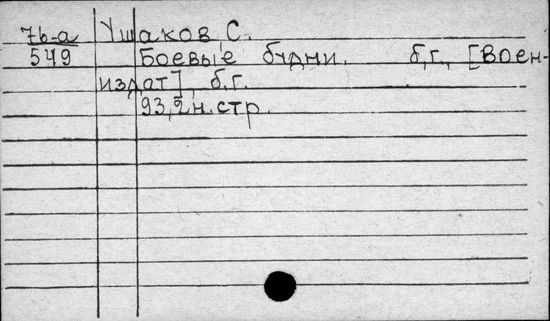 7б-а Ушаков С.
549 Боевые будни. б,г., [Воен-
издат], б,г.
93,2н.стр.